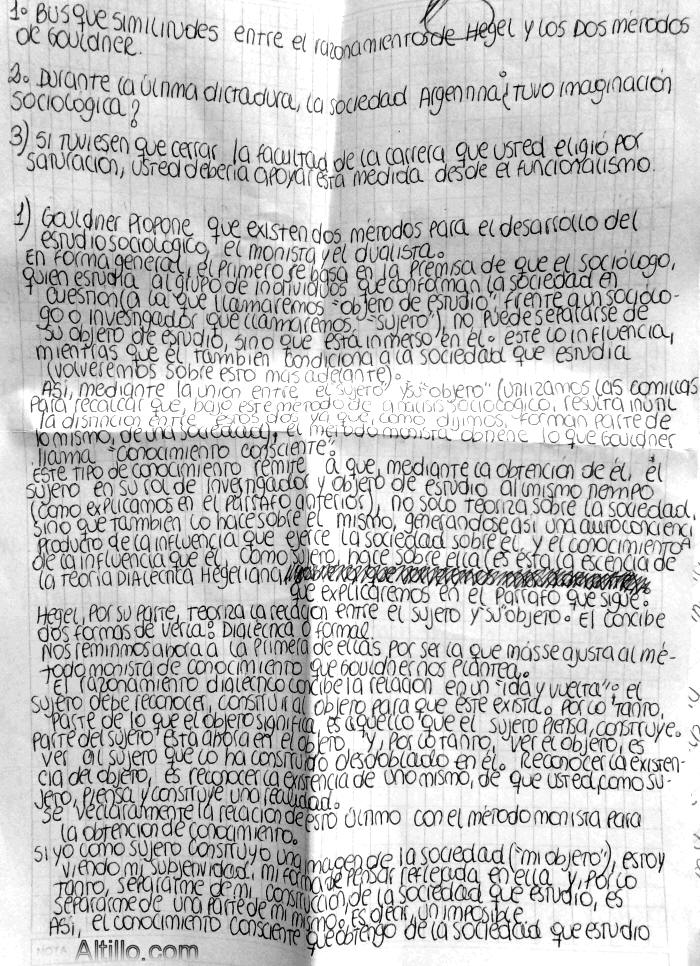 1º BUSQUE SIMILITUDES entre el razonamiento de Hegel y los DOS métodos
DE GOULDNER.
2º DURANTE LA ÚLTIMA DICTADURA, LA SOCIEDAD ARGENTINA ¿TUVO IMAGINACIÓN
SOCIOLOGICA?
3) SI TUVIESEN QUE CERRAR LA FACULTAD DE LA CARRERA QUE USTED ELIGIÓ POR
SATURACION, USTED DEBERIA APOYAR ESTA MEDIDA DESDE EL FUNCIONALISMO.
1) GOULDNER PROPONE QUE EXISTEN DOS MÉTODOS PARA EL DESARROLLO DEL
ESTUDIO SOCIOLOGICO, EL MONISTA Y EL DUALISTA.
EN FORMA GENERAL, EL PRIMERO SE BASA EN LA PREMISA DE QUE EL SOCIÓLOGO,
QUIEN ESTUDIA AL GRUPO DE INDIVIDUOS QUE CONFORMAN LA SOCIEDAD EN
CUESTION (A LA QUE LLAMAREMOS "OBJETO DE ESTUDIO" FRENTE A UN SOCIÓLO-
GO O INVESTIGADOR QUE LLAMAREMOS "SUJETO"), NO PUEDE SEPARARSE DE
SU OBJETO DE ESTUDIO, SINO QUE ESTÁ INMERSO EN ÉL. ESTE LO INFLUENCIA,
MIENTRAS QUE ÉL TAMBIEN CONDICIONA A LA SOCIEDAD QUE ESTUDIA
(VOLVEREMOS SOBRE ESTO MAS ADELANTE).
ASI, MEDIANTE LA UNION ENTRE EL "SUJETO" Y SU "OBJETO" (UTILIZAMOS LAS COMILLAS
PARA RECALCAR QUE, BAJO ESTE METODO DE ANALISIS SOCIOLOGICO, RESULTA INUTIL
LA DISTINCION ENTRE ESTOS, YA QUE, COMO DIJIMOS, FORMAN PARTE DE
LO MISMO, DE UNA SOCIEDAD), EL METODO MONISTA OBTIENE LO QUE GOULDNER
LLAMA "CONOCIMIENTO CONSCIENTE".
ESTE TIPO DE CONOCIMIENTO REMITE A QUE, MEDIANTE LA OBTENCION DE ÉL, EL
SUJETO EN SU ROL DE INVESTIGADOR Y OBJETO DE ESTUDIO AL MISMO TIEMPO
(COMO EXPLICAMOS EN EL PÁRRAFO ANTERIOR), NO SOLO TEORIZA SOBRE LA SOCIEDAD,
SINO QUE TAMBIEN LO HACE SOBRE ÉL MISMO, GENERANDOSE ASI UNA AUTOCONCIENCIA
PRODUCTO DE LA INFLUENCIA QUE EJERCE LA SOCIEDAD SOBRE ÉL, Y EL CONOCIMIENTO
DE LA INFLUENCIA QUE ÉL, COMO SUJETO, HACE SOBRE ELLA. ES ESTA LA ESCENCIA DE
LA TEORIA DIALECTICA HEGELIANA,
QUE EXPLICAREMOS EN EL PARRAFO QUE SIGUE.
HEGEL, POR SU PARTE, TEORIZA LA RELACION ENTRE EL SUJETO Y "SU" OBJETO. EL CONCIBE
DOS FORMAS DE VERLA: DIALECTICA O FORMAL.
NOS REMITIMOS AHORA A LA PRIMERA DE ELLAS POR SER LA QUE MÁS SE AJUSTA AL MÉ-
TODO MONISTA DE CONOCIMIENTO QUE GOULDNER NOS PLANTEA.
EL RAZONAMIENTO DIALECTICO CONCIBE LA RELACION EN UN "IDA Y VUELTA": EL
SUJETO DEBE RECONOCER, CONSTRUIR AL OBJETO PARA QUE ESTE EXISTA. POR LO TANTO,
PARTE DE LO QUE EL OBJETO SIGNIFICA, ES AQUELLO QUE EL SUJETO PIENSA, CONSTRUYE.
PARTE DEL SUJETO ESTÁ AHORA EN EL OBJETO, Y, POR LO TANTO, VER EL OBJETO, ES
VER AL SUJETO QUE LO HA CONSTRUIDO DESDOBLADO EN ÉL. RECONOCER LA EXISTEN-
CIA DEL OBJETO, ES RECONOCER LA EXISTENCIA DE UNO MISMO, DE QUE USTED, COMO SU-
JETO, PIENSA Y CONSTRUYE UNA REALIDAD.
SE VE CLARAMENTE LA RELACION DE ESTO ÚLTIMO CON EL MÉTODO MONISTA PARA
LA OBTENCION DE CONOCIMIENTO.
SI YO COMO SUJETO CONSTRUYO UNA IMAGEN DE LA SOCIEDAD ("MI OBJETO"), ESTOY
VIENDO MI SUBJETIVIDAD, MI FORMA DE PENSAR REFLEJADA EN ELLA Y, POR LO
TANTO, SEPARARME DE MI CONSTRUCCION DE LA SOCIEDAD QUE ESTUDIO, ES
SEPARARME DE UNA PARTE DE MI MISMO, ES DECIR, UN IMPOSIBLE.
ASI, EL CONOCIMIENTO CONSCIENTE QUE OBTENGO DE LA SOCIEDAD QUE ESTUDIO
NOTA Altillo.com